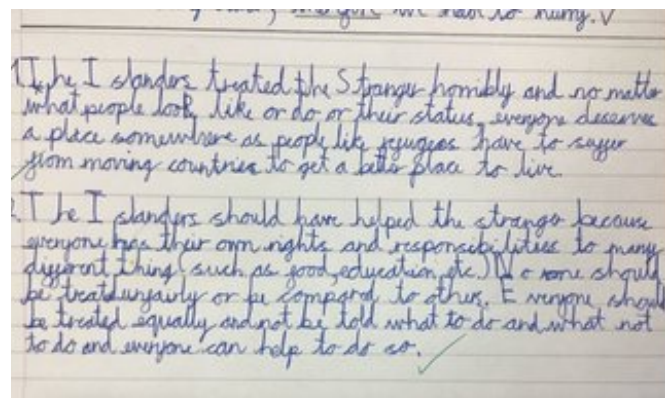 we have to hurry.
1. The Islanders treated the Stranger horribly and no matter
what people look like or do or their status, everyone deserves
a place somewhere as people like refugees have to suffer
from moving countries to get a better place to live.
2. The Islanders should have helped the stranger because
everyone has their own rights and responsibilities to many
different thing (such as good, education, etc.) No one should
be treated unfairly or be compared to others. Everyone should
be treated equally and not be told what to do and what not
to do and everyone can help to do so.